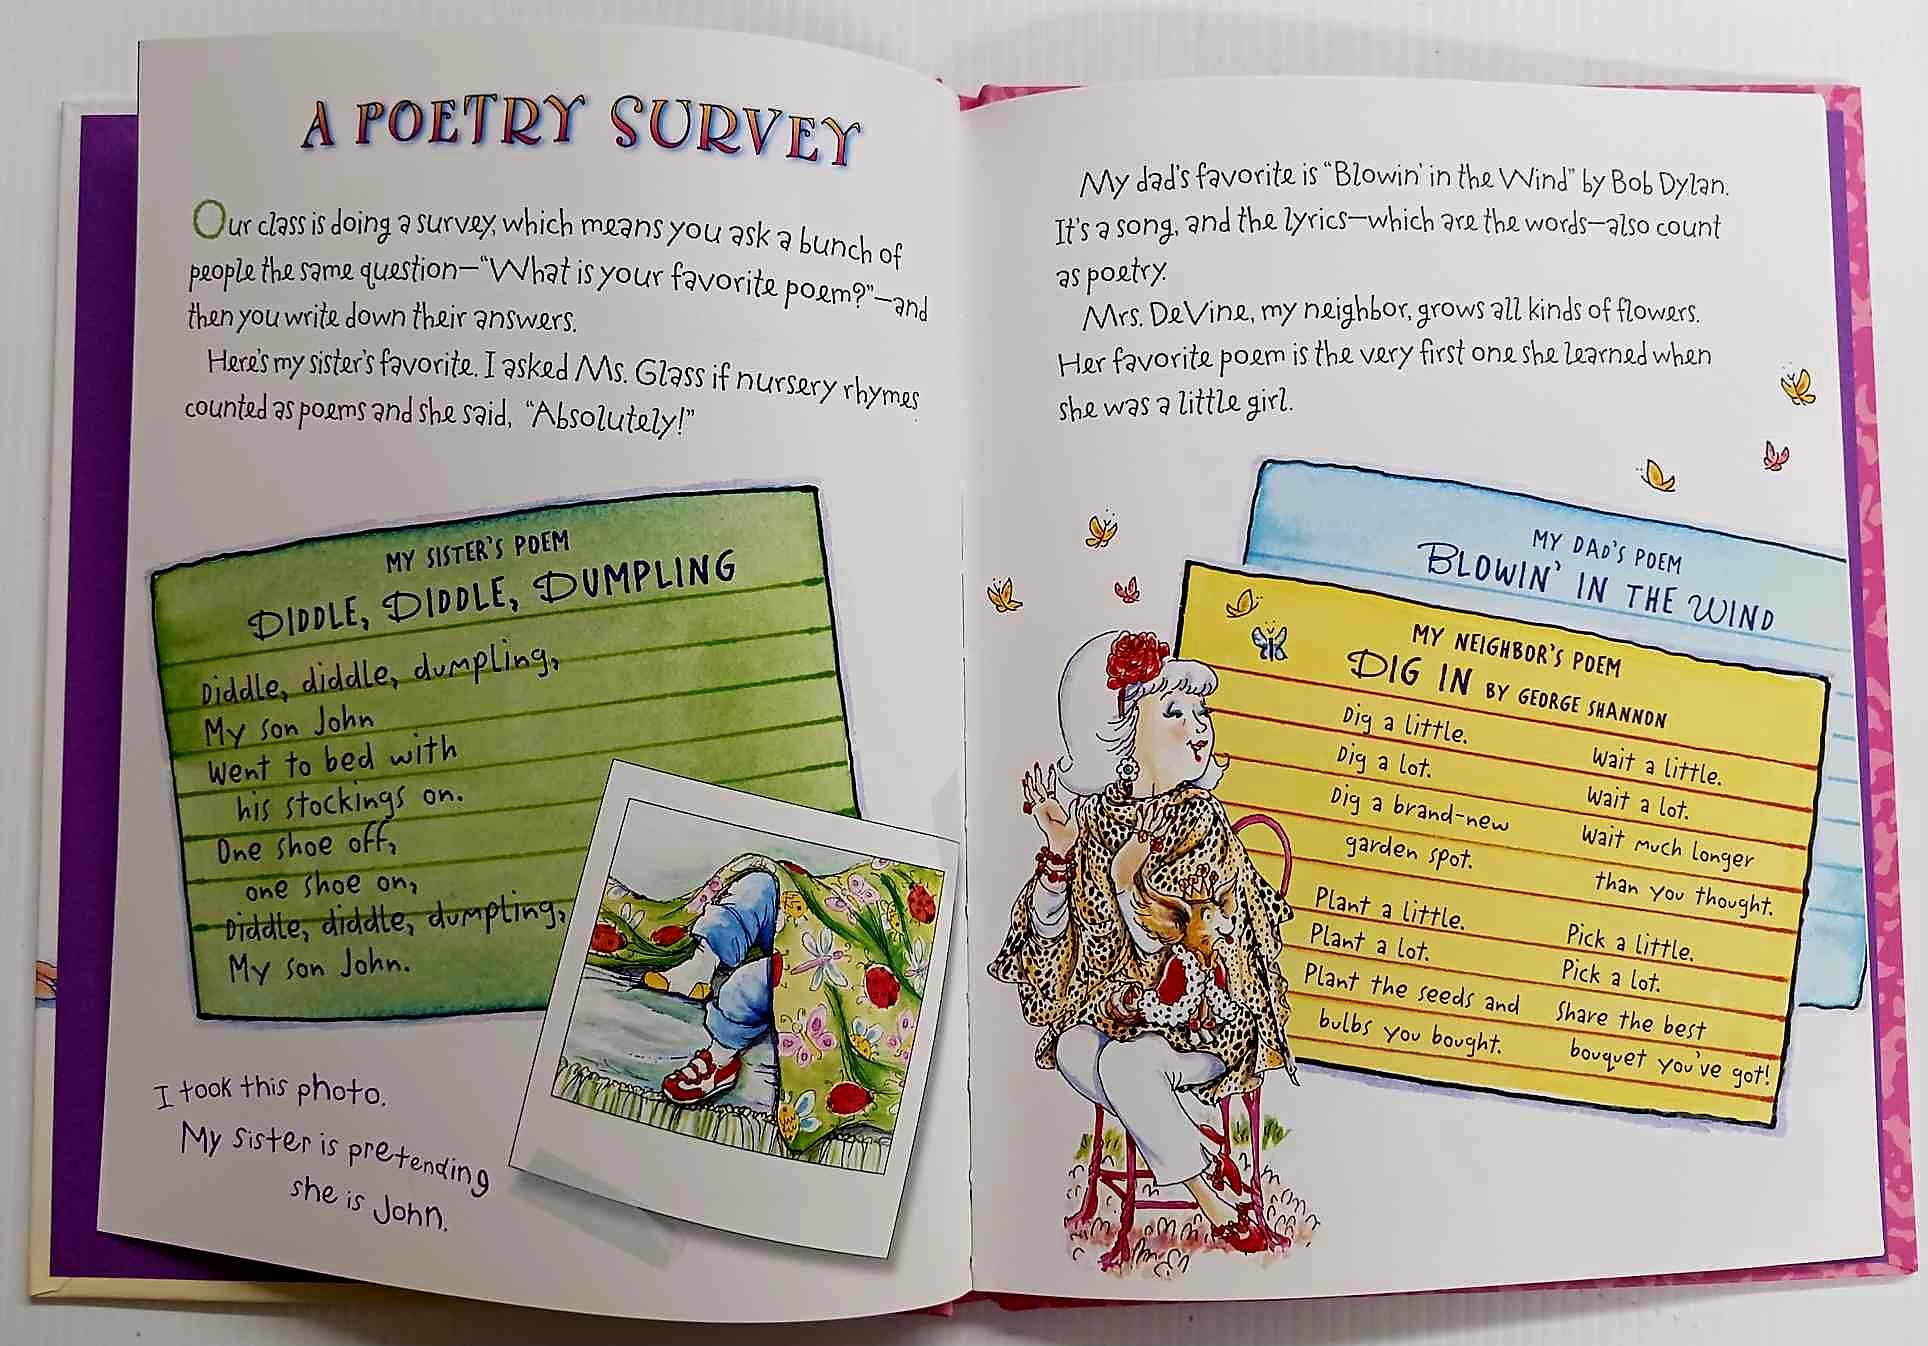 A POETRY SURVEY
Our class is doing a survey, which means you ask a bunch of
people the same question—“What is your favorite poem?”—and
then you write down their answers.
Here's my sister's favorite. I asked Ms. Glass if nursery rhymes
counted as poems and she said, “Absolutely!”
MY SISTER'S POEM
DIDDLE, DIDDLE, DUMPLING
Diddle, diddle, dumpling,
My son John
Went to bed with
his stockings on.
One shoe off,
one shoe on,
Diddle, diddle, dumpling,
My son John.
I took this photo.
My sister is pretending
she is John.
My dad's favorite is “Blowin' in the Wind” by Bob Dylan.
It's a song, and the lyrics—which are the words—also count
as poetry.
Mrs. DeVine, my neighbor, grows all kinds of flowers.
Her favorite poem is the very first one she learned when
she was a little girl.
MY DAD'S POEM
BLOWIN' IN THE WIND
MY NEIGHBOR'S POEM
DIG IN BY GEORGE SHANNON
Dig a little.
Dig a lot.
Dig a brand-new
garden spot.
Plant a little.
Plant a lot.
Plant the seeds and
bulbs you bought.
Wait a little.
Wait a lot.
Wait much longer
than you thought.
Pick a little.
Pick a lot.
Share the best
bouquet you've got!